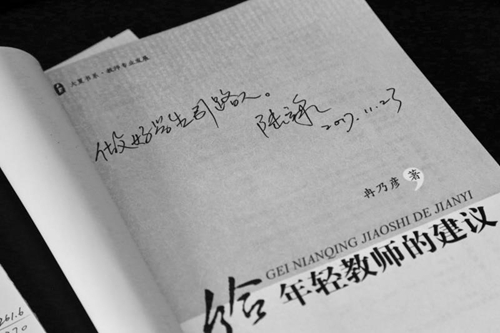 大夏书系·教师专业发展
做好学生引路人。
11.23
冉乃彦 著
GEI NIANQING JIAOSHI DE JIANYI
给年轻教师的建议
261.6
070